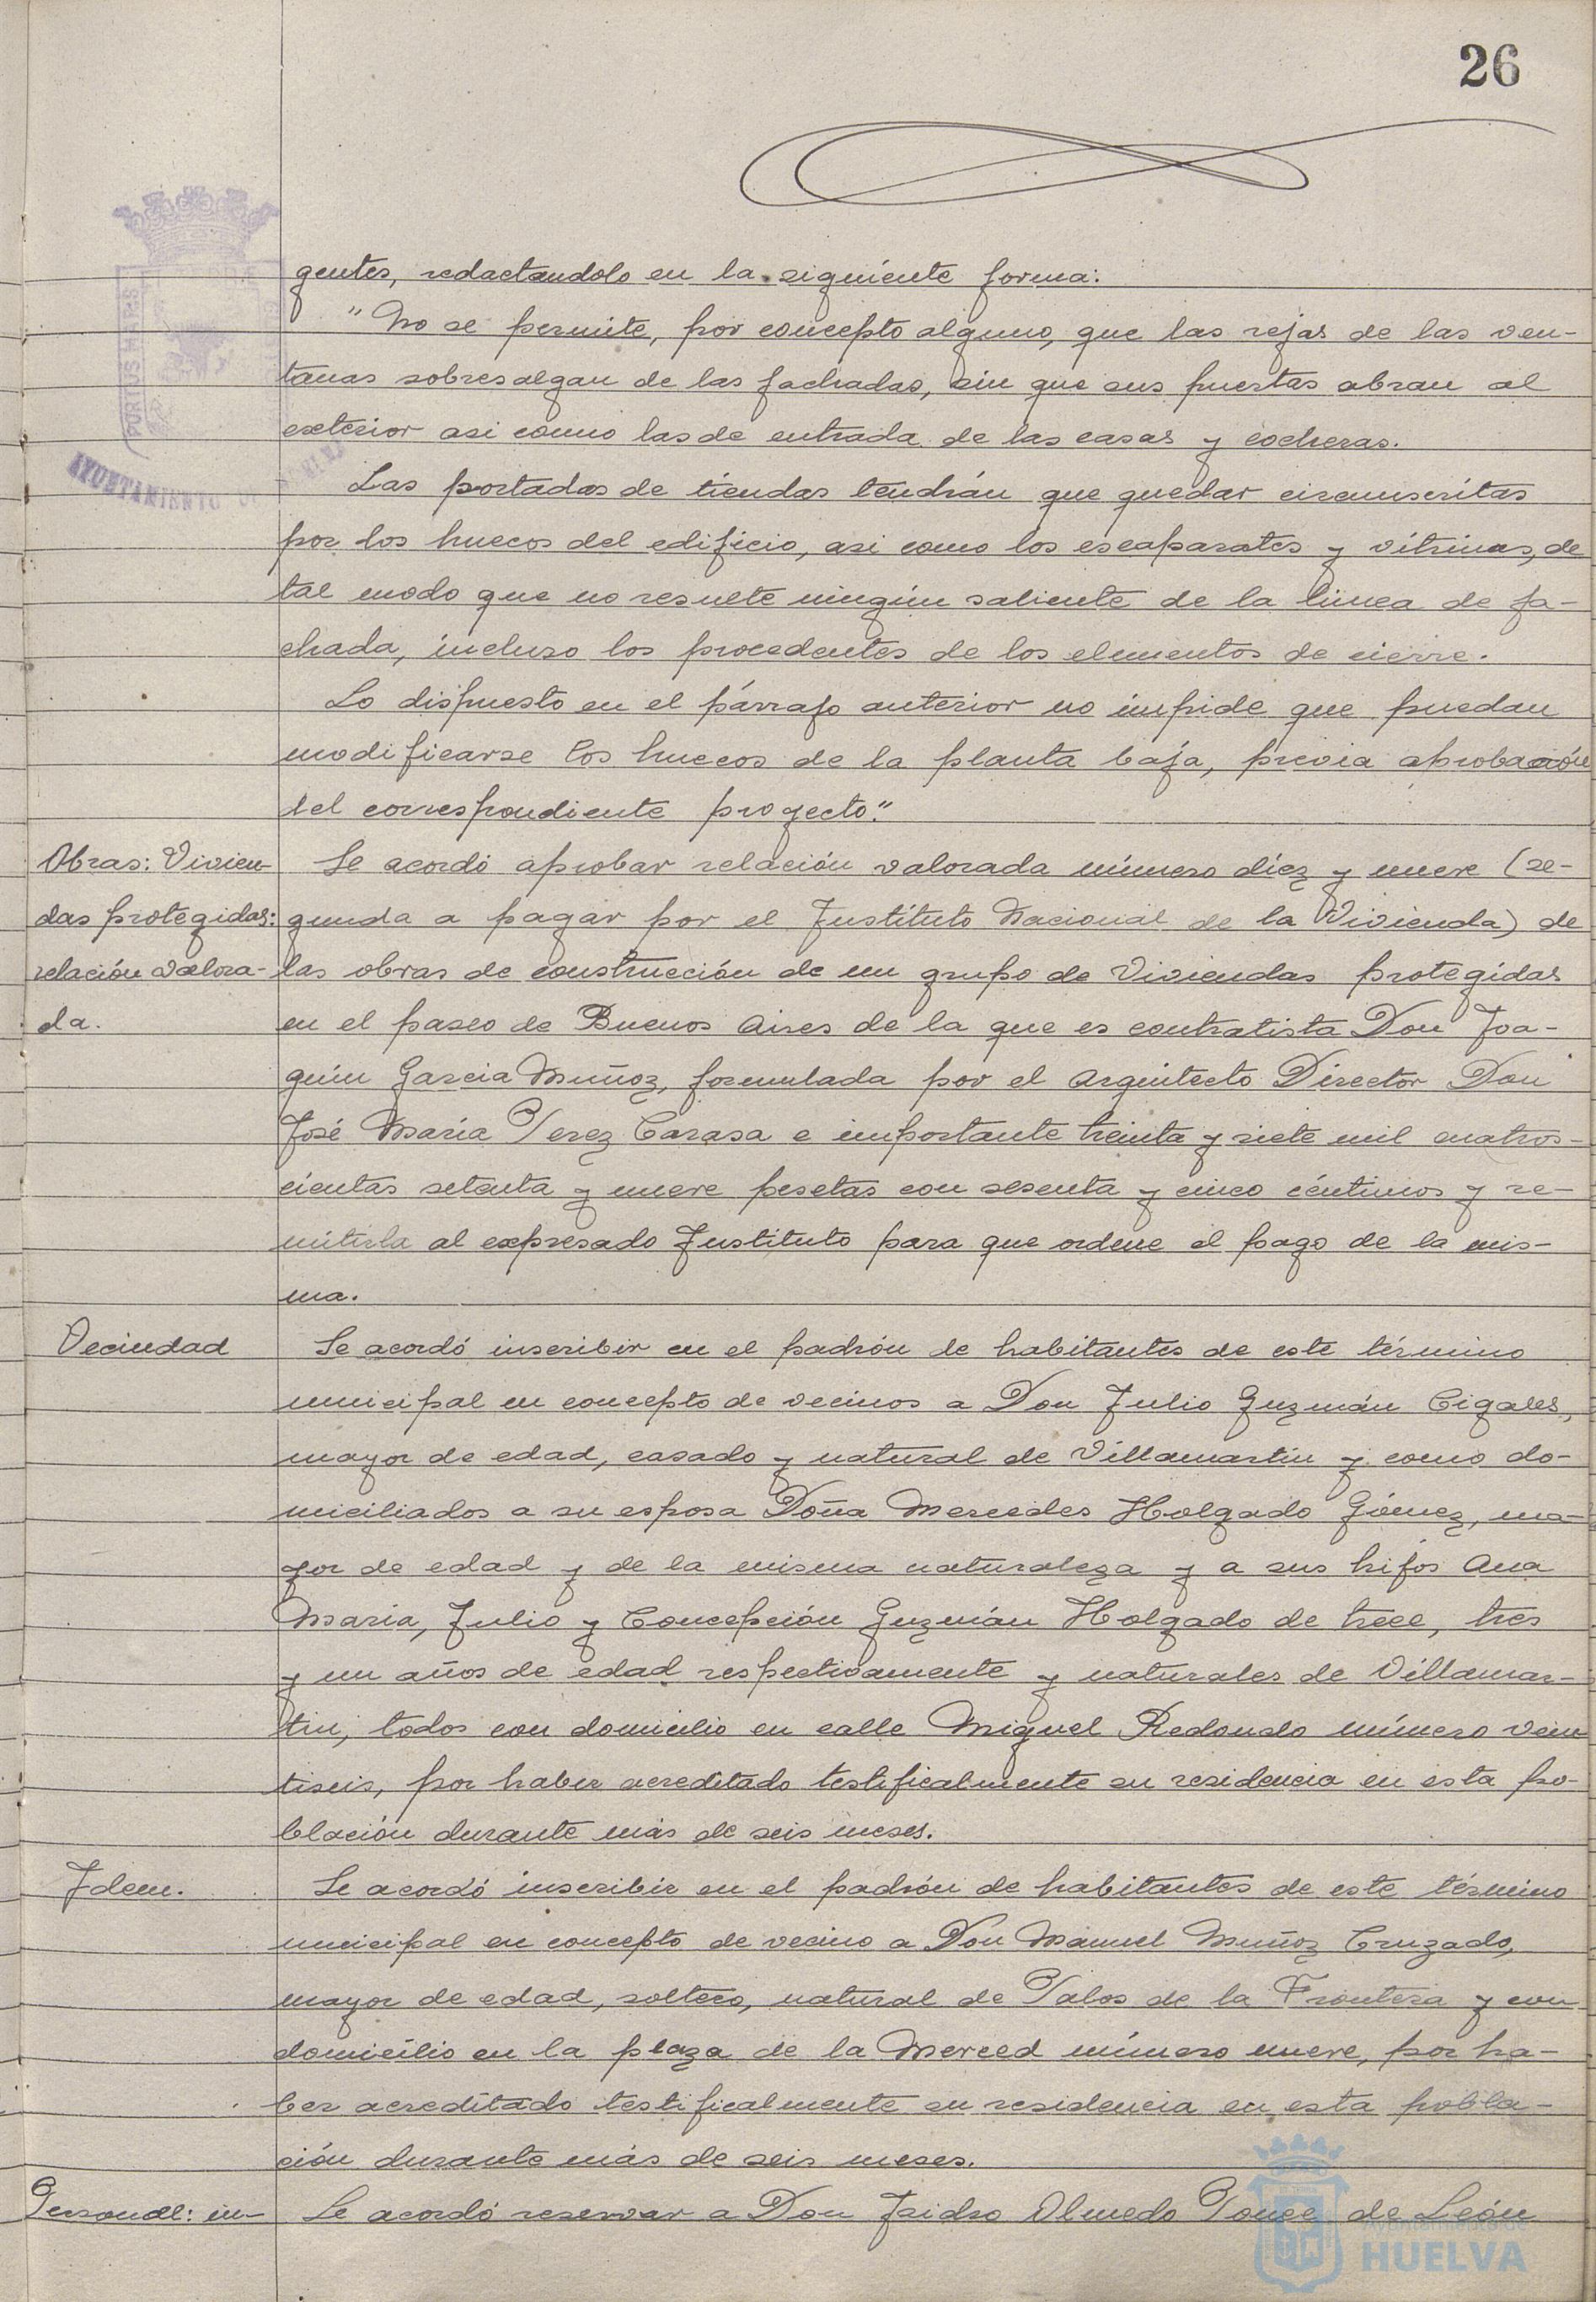 26
PORTUS MARIS
AYUNTAMIENTO
gentes, redactandolo en la siguiente forma:
"No se permite, por concepto alguno, que las rejas de las ven-
tanas sobresalgan de las fachadas, sin que sus puertas abran al
exterior asi como las de entrada de las casas y cocheras.
Las portadas de tiendas tendrán que quedar circunscritas
por los huecos del edificio, asi como los escaparates y vitrinas, de
tal modo que no resulte ningún saliente de la línea de fa-
chada, incluso los procedentes de los elementos de cierre.
Lo dispuesto en el párrafo anterior no impide que puedan
modificarse los huecos de la planta baja, previa aprobación
del correspondiente proyecto."
Obras: Vivien-
das protegidas:
relación valora-
da.
Se acordó aprobar relación valorada número diez y nueve (se-
gunda a pagar por el Instituto Nacional de la Vivienda) de
las obras de construcción de un grupo de Viviendas protegidas
en el paseo de Buenos Aires de la que es contratista Don Joa-
quín Garcia Muñoz, formulada por el Arquitecto Director Don
José Maria Perez Carasa e importante treinta y siete mil cuatros-
cientas setenta y nueve pesetas con sesenta y cinco céntimos y re-
mitirla al expresado Instituto para que ordene el pago de la mis-
ma.
Vecindad
Se acordó inscribir en el padrón de habitantes de este término
municipal en concepto de vecinos a Don Julio Guzmán Cigales,
mayor de edad, casado y natural de Villamartin y como do-
miciliados a su esposa Doña Mercedes Holgado Gómez, ma-
yor de edad y de la misma naturaleza y a sus hijos Ana
Maria, Julio y Concepción Guzmán Holgado de trece, tres
y un años de edad respectivamente y naturales de Villamar-
tin, todos con domicilio en calle Miguel Redondo número vein
tiseis, por haber acreditado testificalmente su residencia en esta po-
blación durante más de seis meses.
Idem.
Se acordó inscribir en el padrón de habitantes de este término
municipal en concepto de vecino a Don Manuel Muñoz Cruzado,
mayor de edad, soltero, natural de Palos de la Frontera y con
domicilio en la plaza de la Merced número nueve, por ha-
ber acreditado testificalmente su residencia en esta pobla-
ción durante más de seis meses.
Personal: in-
Se acordó reservar a Don Isidro Olmedo Ponce de León
Ayuntamiento de
HUELVA